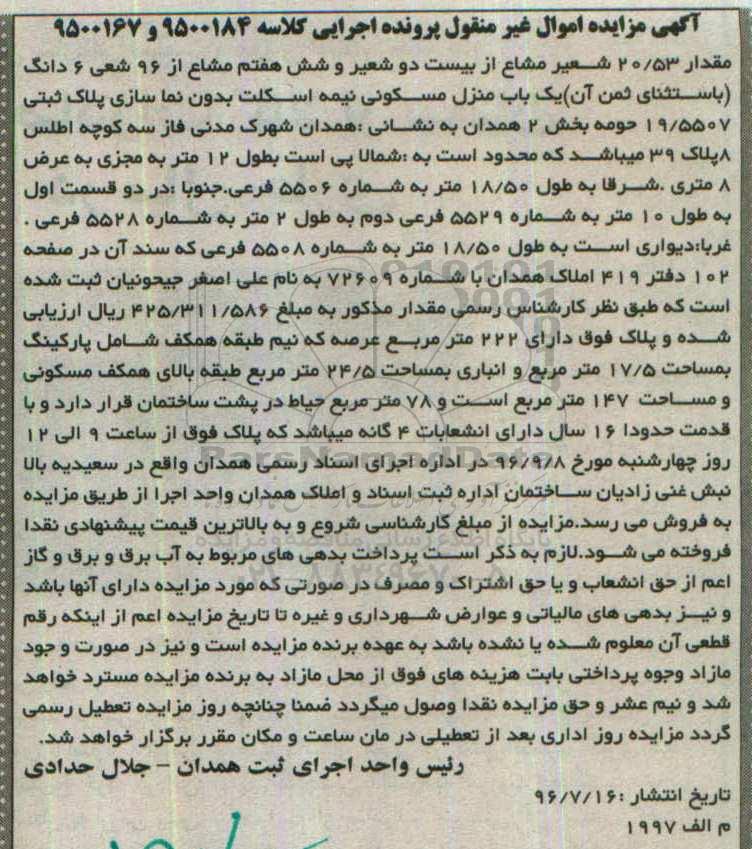 آگهی مزایده اموال غیر منقول پرونده اجرایی کلاسه ۹۵۰۰۱۸۴ و ۹۵۰۰۱۶۷
مقدار ۲۰/۵۳ شعیر مشاع از بیست دو شعیر و شش هفتم مشاع از ۹۶ شعی ۶ دانگ
(باستثنای ثمن آن)یک باب منزل مسکونی نیمه اسکلت بدون نما سازی پلاک ثبتی
۱۹/۵۵۰۷ حومه بخش ۲ همدان به نشانی :همدان شهرک مدنی فاز سه کوچه اطلس
۸پلاک ۳۹ میباشد که محدود است به :شمالا پی است بطول ۱۲ متر به مجزی به عرض
۸ متری .شرقا به طول ۱۸/۵۰ متر به شماره ۵۵۰۶ فرعی.جنوبا :در دو قسمت اول
به طول ۱۰ متر به شماره ۵۵۲۹ فرعی دوم به طول ۲ متر به شماره ۵۵۲۸ فرعی .
غربا:دیواری است به طول ۱۸/۵۰ متر به شماره ۵۵۰۸ فرعی که سند آن در صفحه
۱۰۲ دفتر ۴۱۹ املاک همدان با شماره ۷۲۶۰۹ به نام علی اصغر جیحونیان ثبت شده
است که طبق نظر کارشناس رسمی مقدار مذکور به مبلغ ۴۲۵/۳۱۱/۵۸۶ ریال ارزیابی
شده و پلاک فوق دارای ۲۲۲ متر مربع عرصه که نیم طبقه همکف شامل پارکینگ
بمساحت ۱۷/۵ متر مربع و انباری بمساحت ۲۴/۵ متر مربع طبقه بالای همکف مسکونی
و مساحت ۱۴۷ متر مربع است و ۷۸ متر مربع حیاط در پشت ساختمان قرار دارد و با
قدمت حدودا ۱۶ سال دارای انشعابات ۴ گانه میباشد که پلاک فوق از ساعت ۹ الی ۱۲
روز چهارشنبه مورخ ۹۶/۹/۸ در اداره اجرای اسناد رسمی همدان واقع در سعیدیه بالا
نبش غنی زادیان ساختمان اداره ثبت اسناد و املاک همدان واحد اجرا از طریق مزایده
به فروش می رسد.مزایده از مبلغ کارشناسی شروع و به بالاترین قیمت پیشنهادی نقدا
فروخته می شود.لازم به ذکر است پرداخت بدهی های مربوط به آب برق و برق و گاز
اعم از حق انشعاب و یا حق اشتراک و مصرف در صورتی که مورد مزایده دارای آنها باشد
و نیز بدهی های مالیاتی و عوارض شهرداری و غیره تا تاریخ مزایده اعم از اینکه رقم
قطعی آن معلوم شده یا نشده باشد به عهده برنده مزایده است و نیز در صورت و جود
مازاد وجوه پرداختی بابت هزینه های فوق از محل مازاد به برنده مزایده مسترد خواهد
شد و نیم عشر و حق مزایده نقدا وصول میگردد ضمنا چنانچه روز مزایده تعطیل رسمی
گردد مزایده روز اداری بعد از تعطیلی در مان ساعت و مکان مقرر برگزار خواهد شد.
رئیس واحد اجرای ثبت همدان - جلال حدادی
تاریخ انتشار :۹۶/۷/۱۶
م الف ۱۹۹۷
ParsNamadData